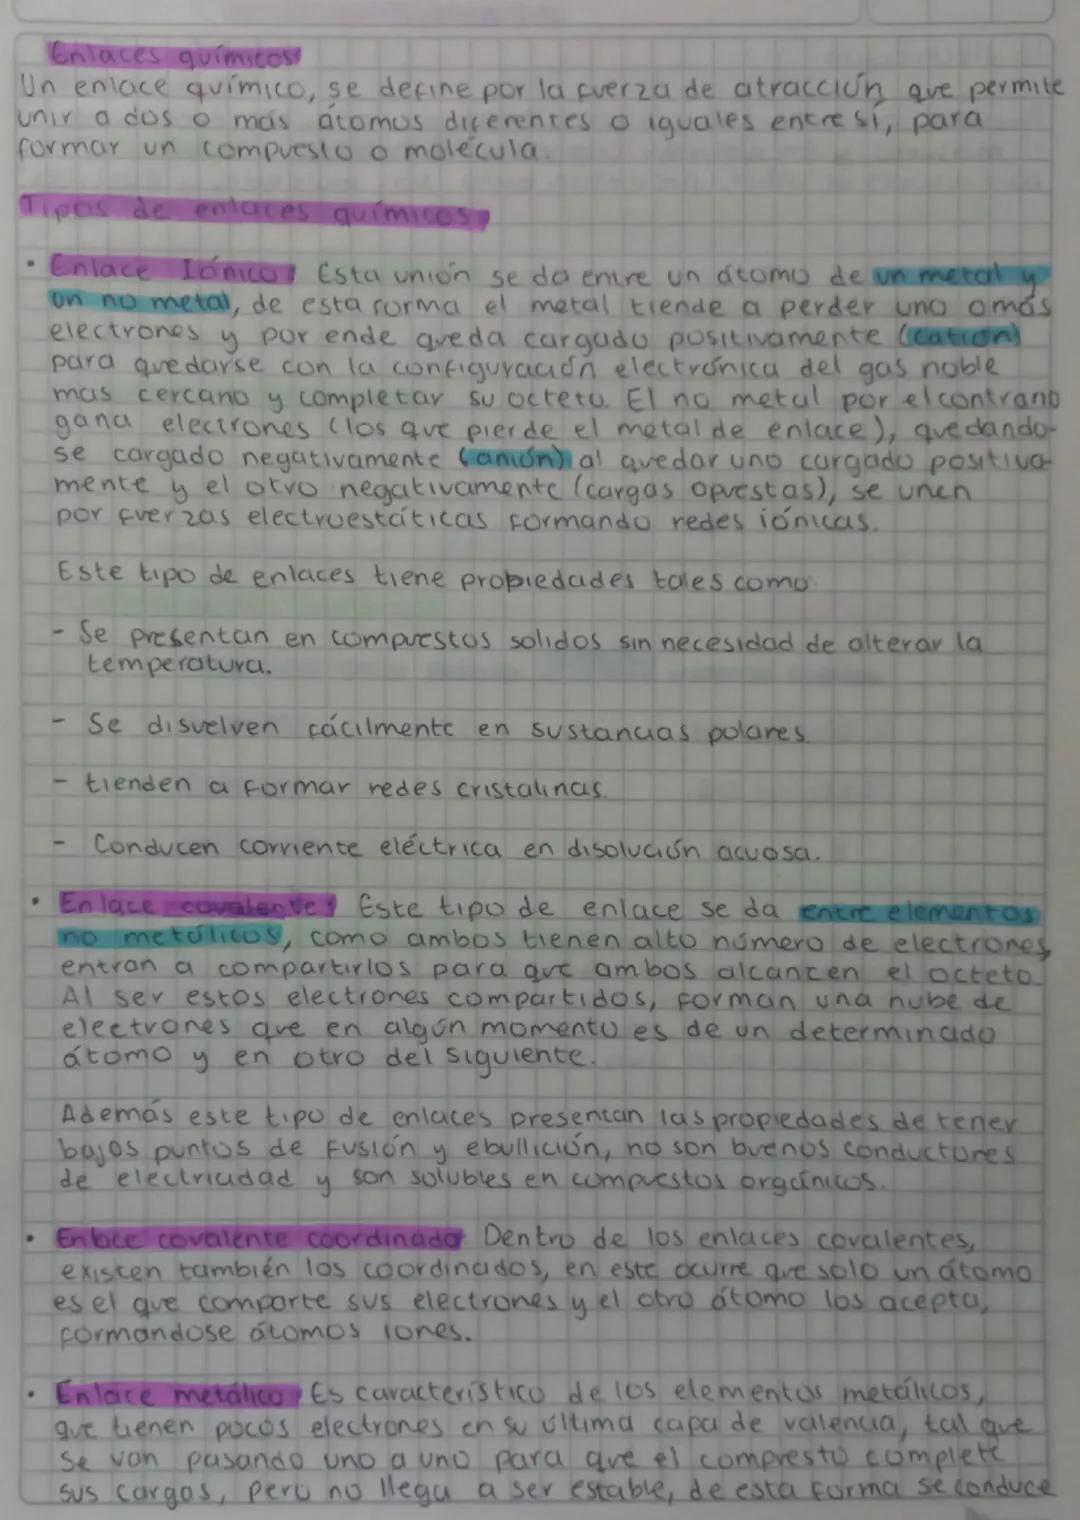 Enlaces químicos
Un enlace químico, se define por la fuerza de atracción que permite
unir a dos o más átomos diferentes o iguales entre sí, para
formar un compuesto o molécula.
Tipos de enlaces químicos
• Enlace Iónico: Esta unión se da entre un átomo de un metal y
un no metal, de esta forma el metal tiende a perder uno o más
electrones y por ende queda cargado positivamente (catión)
para quedarse con la configuración electrónica del gas noble
mas cercano y completar su octeto. El no metal por el contrario
gana electrones (los que pierde el metal de enlace), quedando-
se cargado negativamente (anión) al quedar uno cargado positiva-
mente y el otro negativamente (cargas opuestas), se unen
por fuerzas electroestáticas formando redes iónicas.
Este tipo de enlaces tiene propiedades tales como:
- Se presentan en compuestos solidos sin necesidad de alterar la
temperatura.
- Se disuelven fácilmente en sustancias polares.
- tienden a formar redes cristalinas.
- Conducen corriente eléctrica en disolución acuosa.
• Enlace covalente: Este tipo de enlace se da entre elementos
no metálicos, como ambos tienen alto número de electrones,
entran a compartirlos para que ambos alcancen el octeto.
Al ser estos electrones compartidos, forman una nube de
electrones que en algún momento es de un determinado
átomo y en otro del siguiente.
Además este tipo de enlaces presentan las propiedades de tener
bajos puntos de fusión y ebullición, no son buenos conductores
de electricidad y son solubles en compuestos orgánicos.
• Enlace covalente coordinado Dentro de los enlaces covalentes,
existen también los coordinados, en este ocurre que solo un átomo
es el que comparte sus electrones y el otro átomo los acepta,
formandose átomos iones.
• Enlace metálico Es característico de los elementos metálicos,
que tienen pocos electrones en su última capa de valencia, tal que
se van pasando uno a uno para que el compresto complete
sus cargas, pero no llega a ser estable, de esta forma se conduce